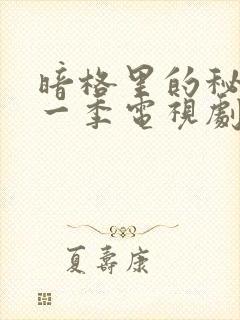 暗格里的秘
一季電視劇
夏壽康